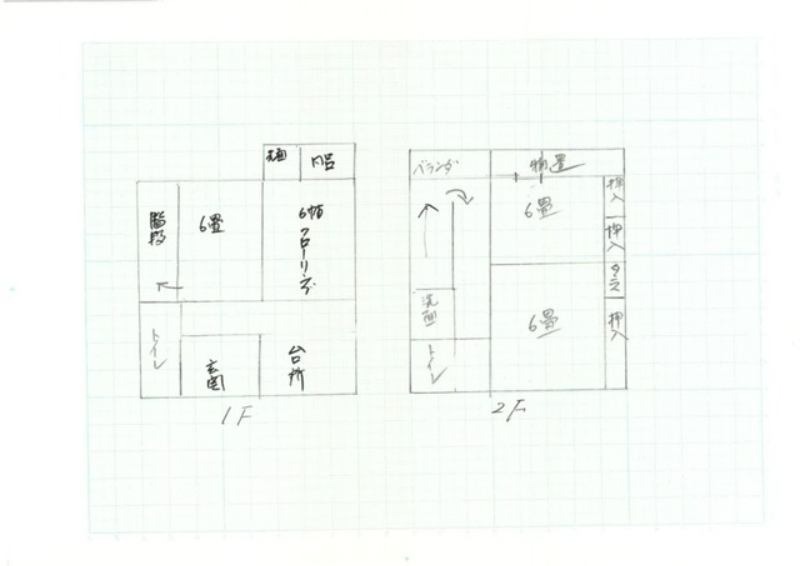 洗面
風呂
階段
6畳
6帖フローリング
トイレ
玄関
台所
1F
ベランダ
物置
6畳
押入
押入
タンス
洗面
6畳
押入
トイレ
2F